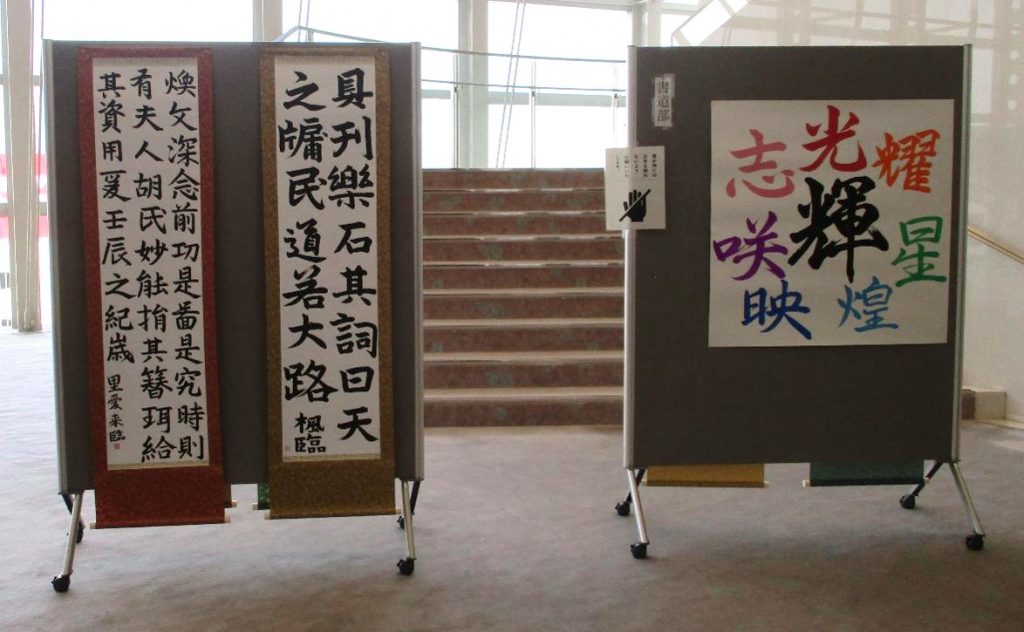 具刊樂石其詞曰天
之牖民道若大路
楓臨
煥文深念前功是啚是究時則
有夫人胡氏妙能捐其簪珥給
其資用爰壬辰之紀歳
里愛来臨
書道部
光
志
耀
輝
咲
星
映
煌